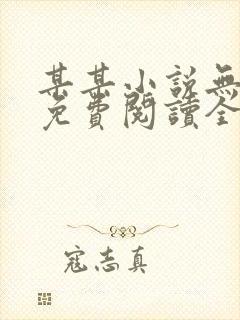 甚甚小說無
免費閱讀全
寇志真